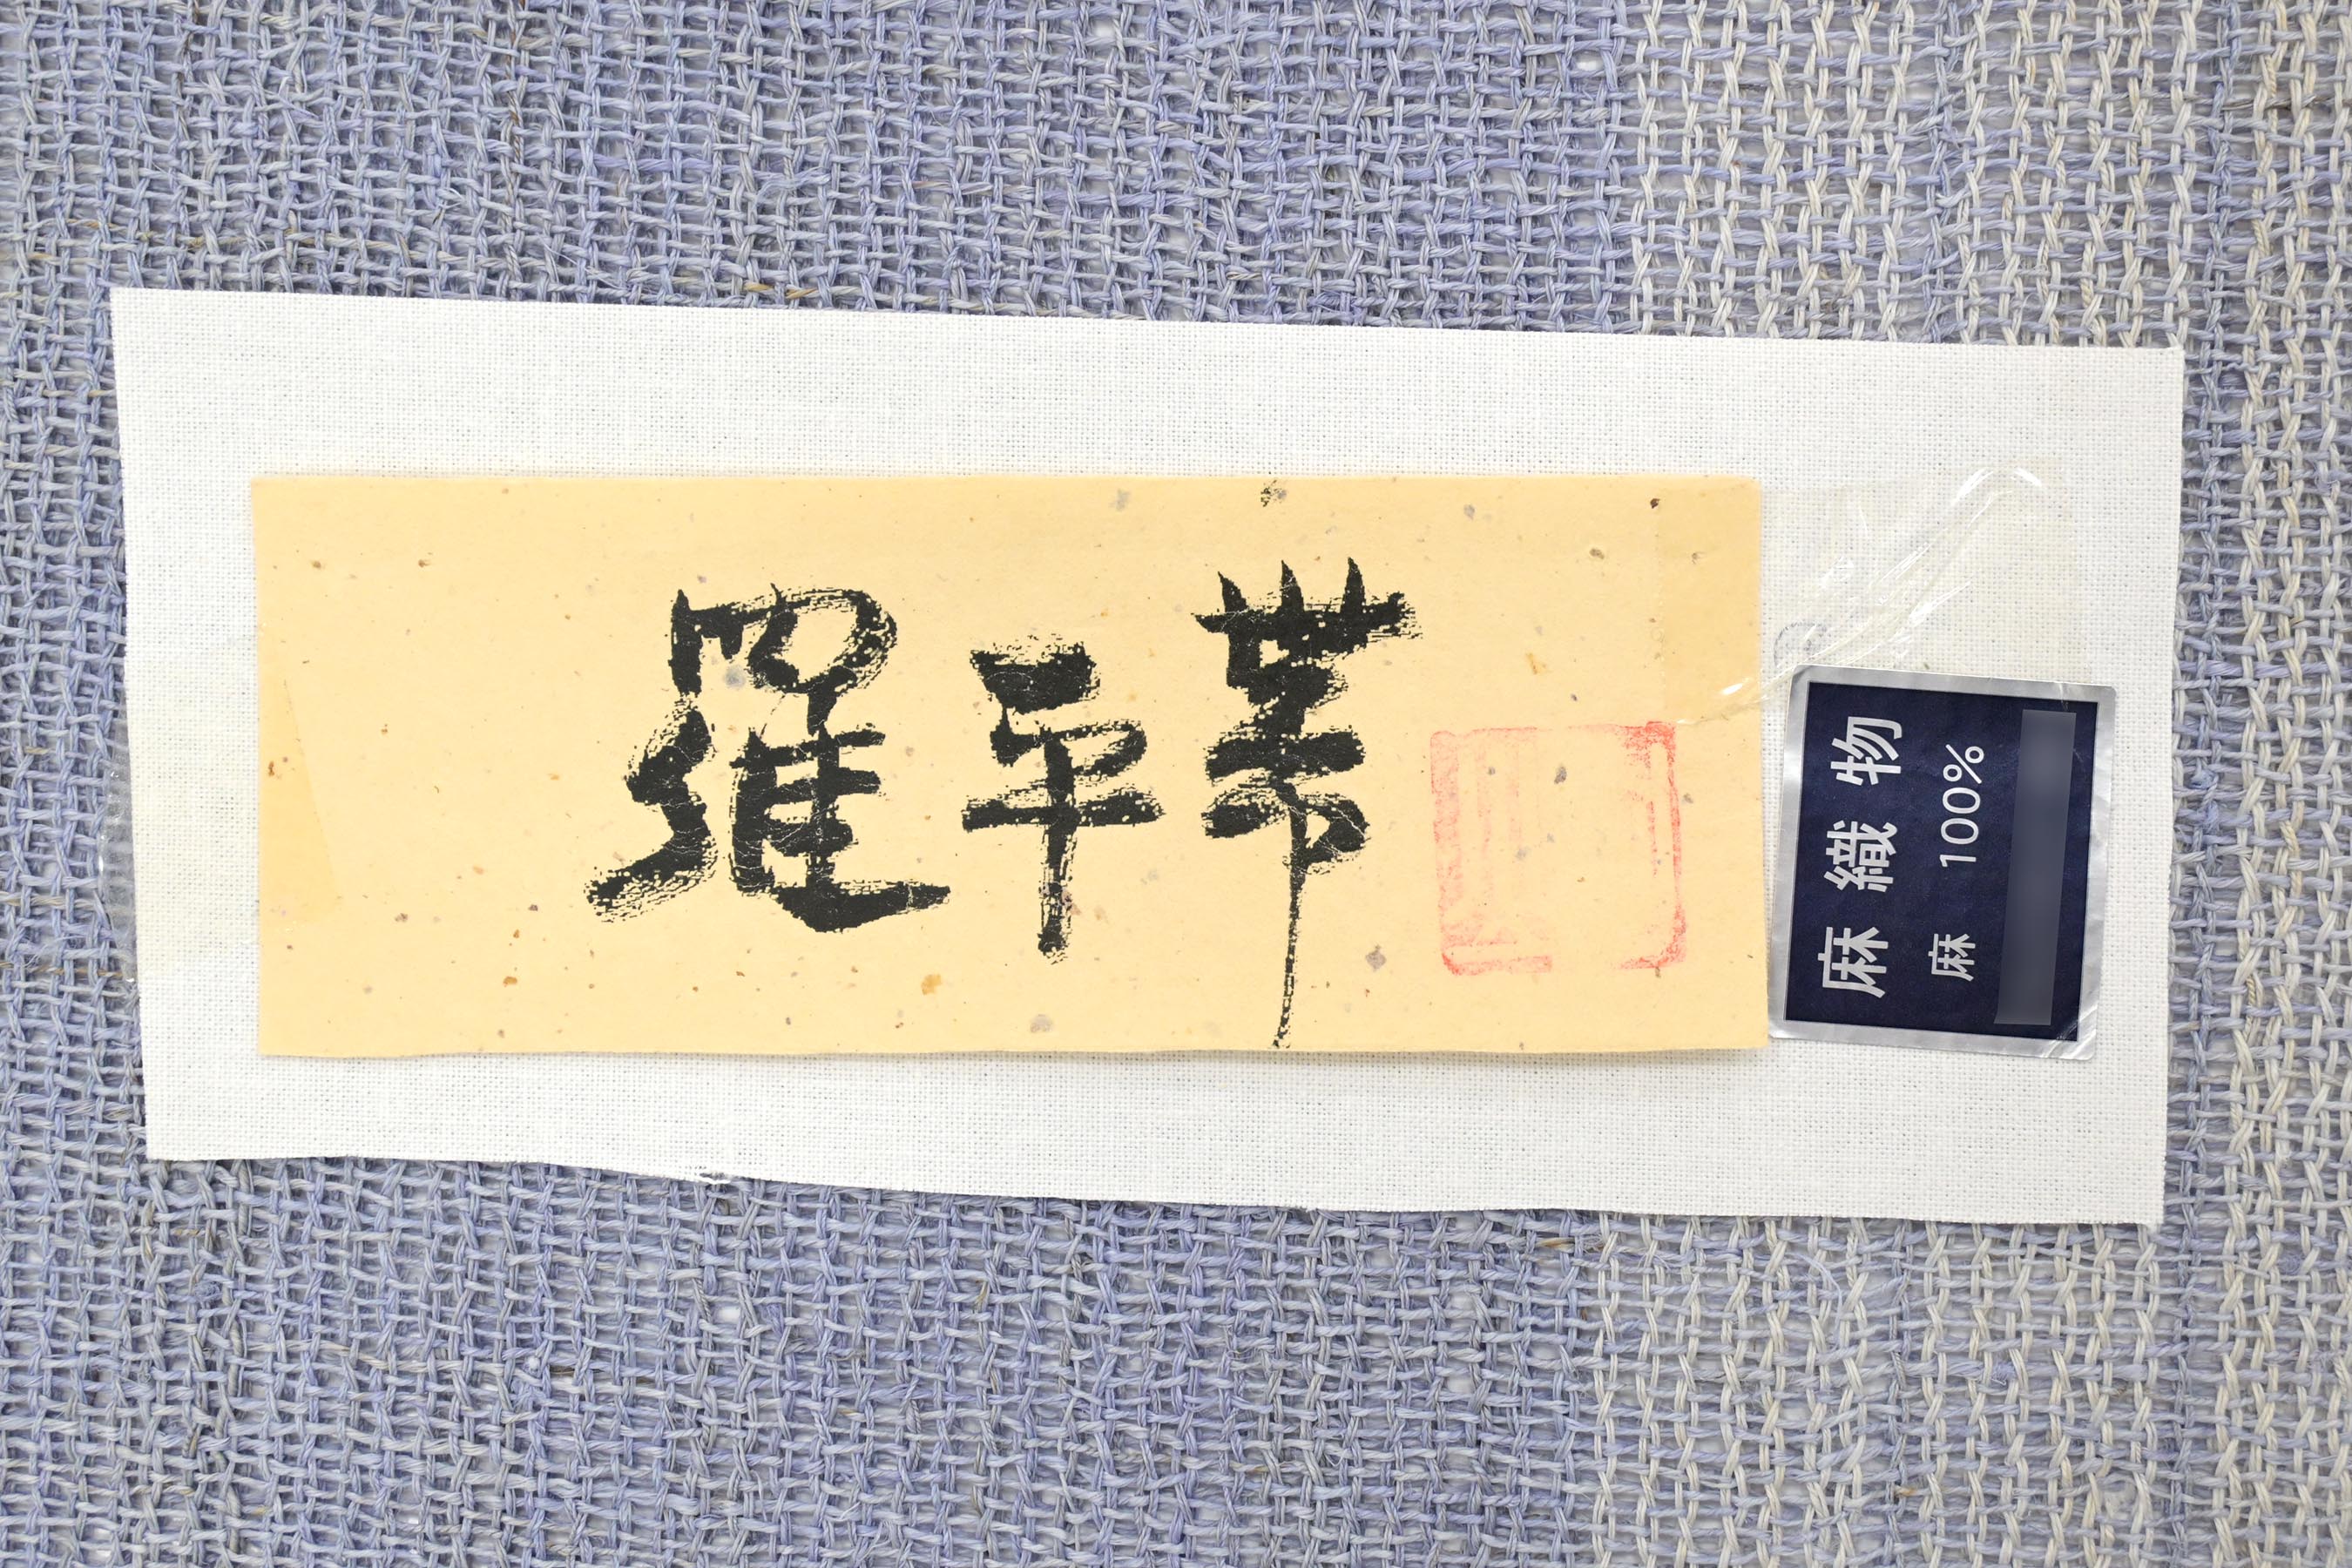 羅平帯
麻織物
麻 100%